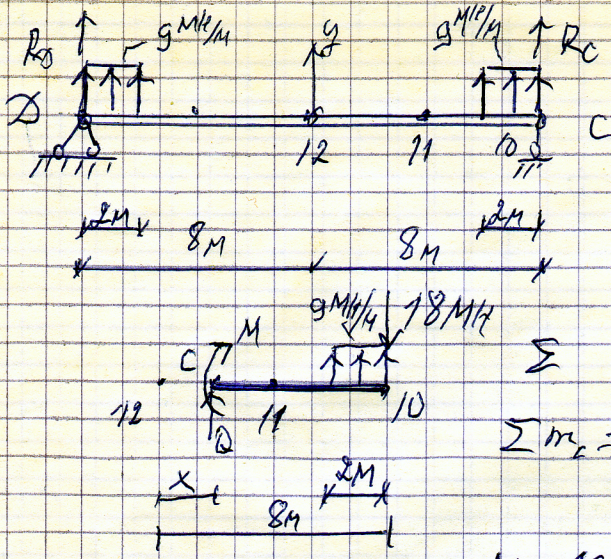 R_D 9 МН/м y 9 МН/м R_C
D 12 11 10 C
2м 2м
8м 8м
9 МН/м 18 МН
C M Σ
12 Q 11 10 Σ m_c =
x 2м
8м